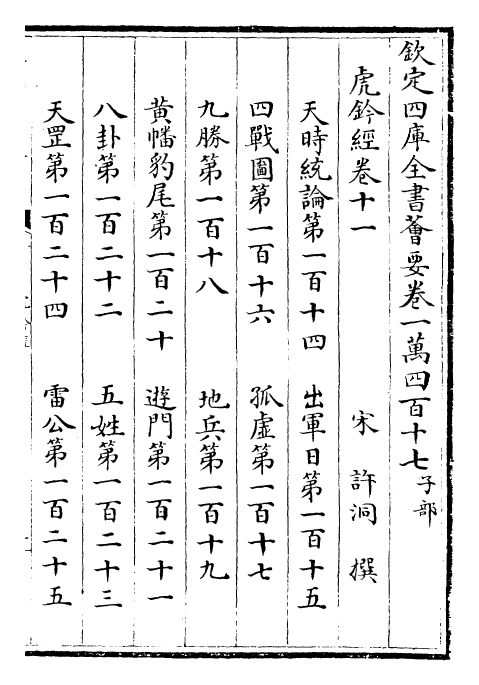 欽定四庫全書薈要卷一萬四百十七子部
虎鈐經卷十一　宋　許洞　撰
天時統論第一百十四　出軍日第一百十五
四戰圖第一百十六　孤虛第一百十七
九勝第一百十八　地兵第一百十九
黄幡豹尾第一百二十　遊門第一百二十一
八卦第一百二十二　五姓第一百二十三
天罡第一百二十四　雷公第一百二十五